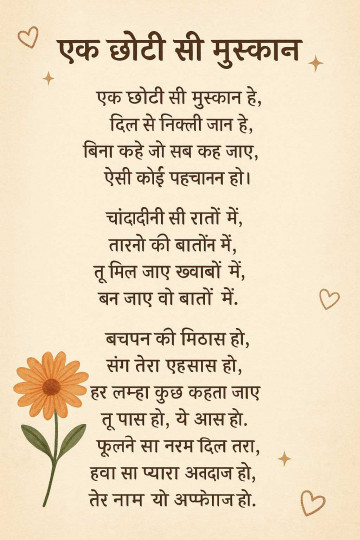 एक छोटी सी मुस्कान
एक छोटी सी मुस्कान हे,
दिल से निक्ली जान हे,
बिना कहे जो सब कह जाए,
ऐसी कोई पहचानन हो।
चांदादीनी सी रातों में,
तारनो की बातोंन में,
तू मिल जाए ख्वाबों में,
बन जाए वो बातों में.
बचपन की मिठास हो,
संग तेरा एहसास हो,
हर लम्हा कुछ कहता जाए
तू पास हो, ये आस हो.
फूलने सा नरम दिल तरा,
हवा सा प्यारा अवदाज हो,
तेर नाम यो हो.